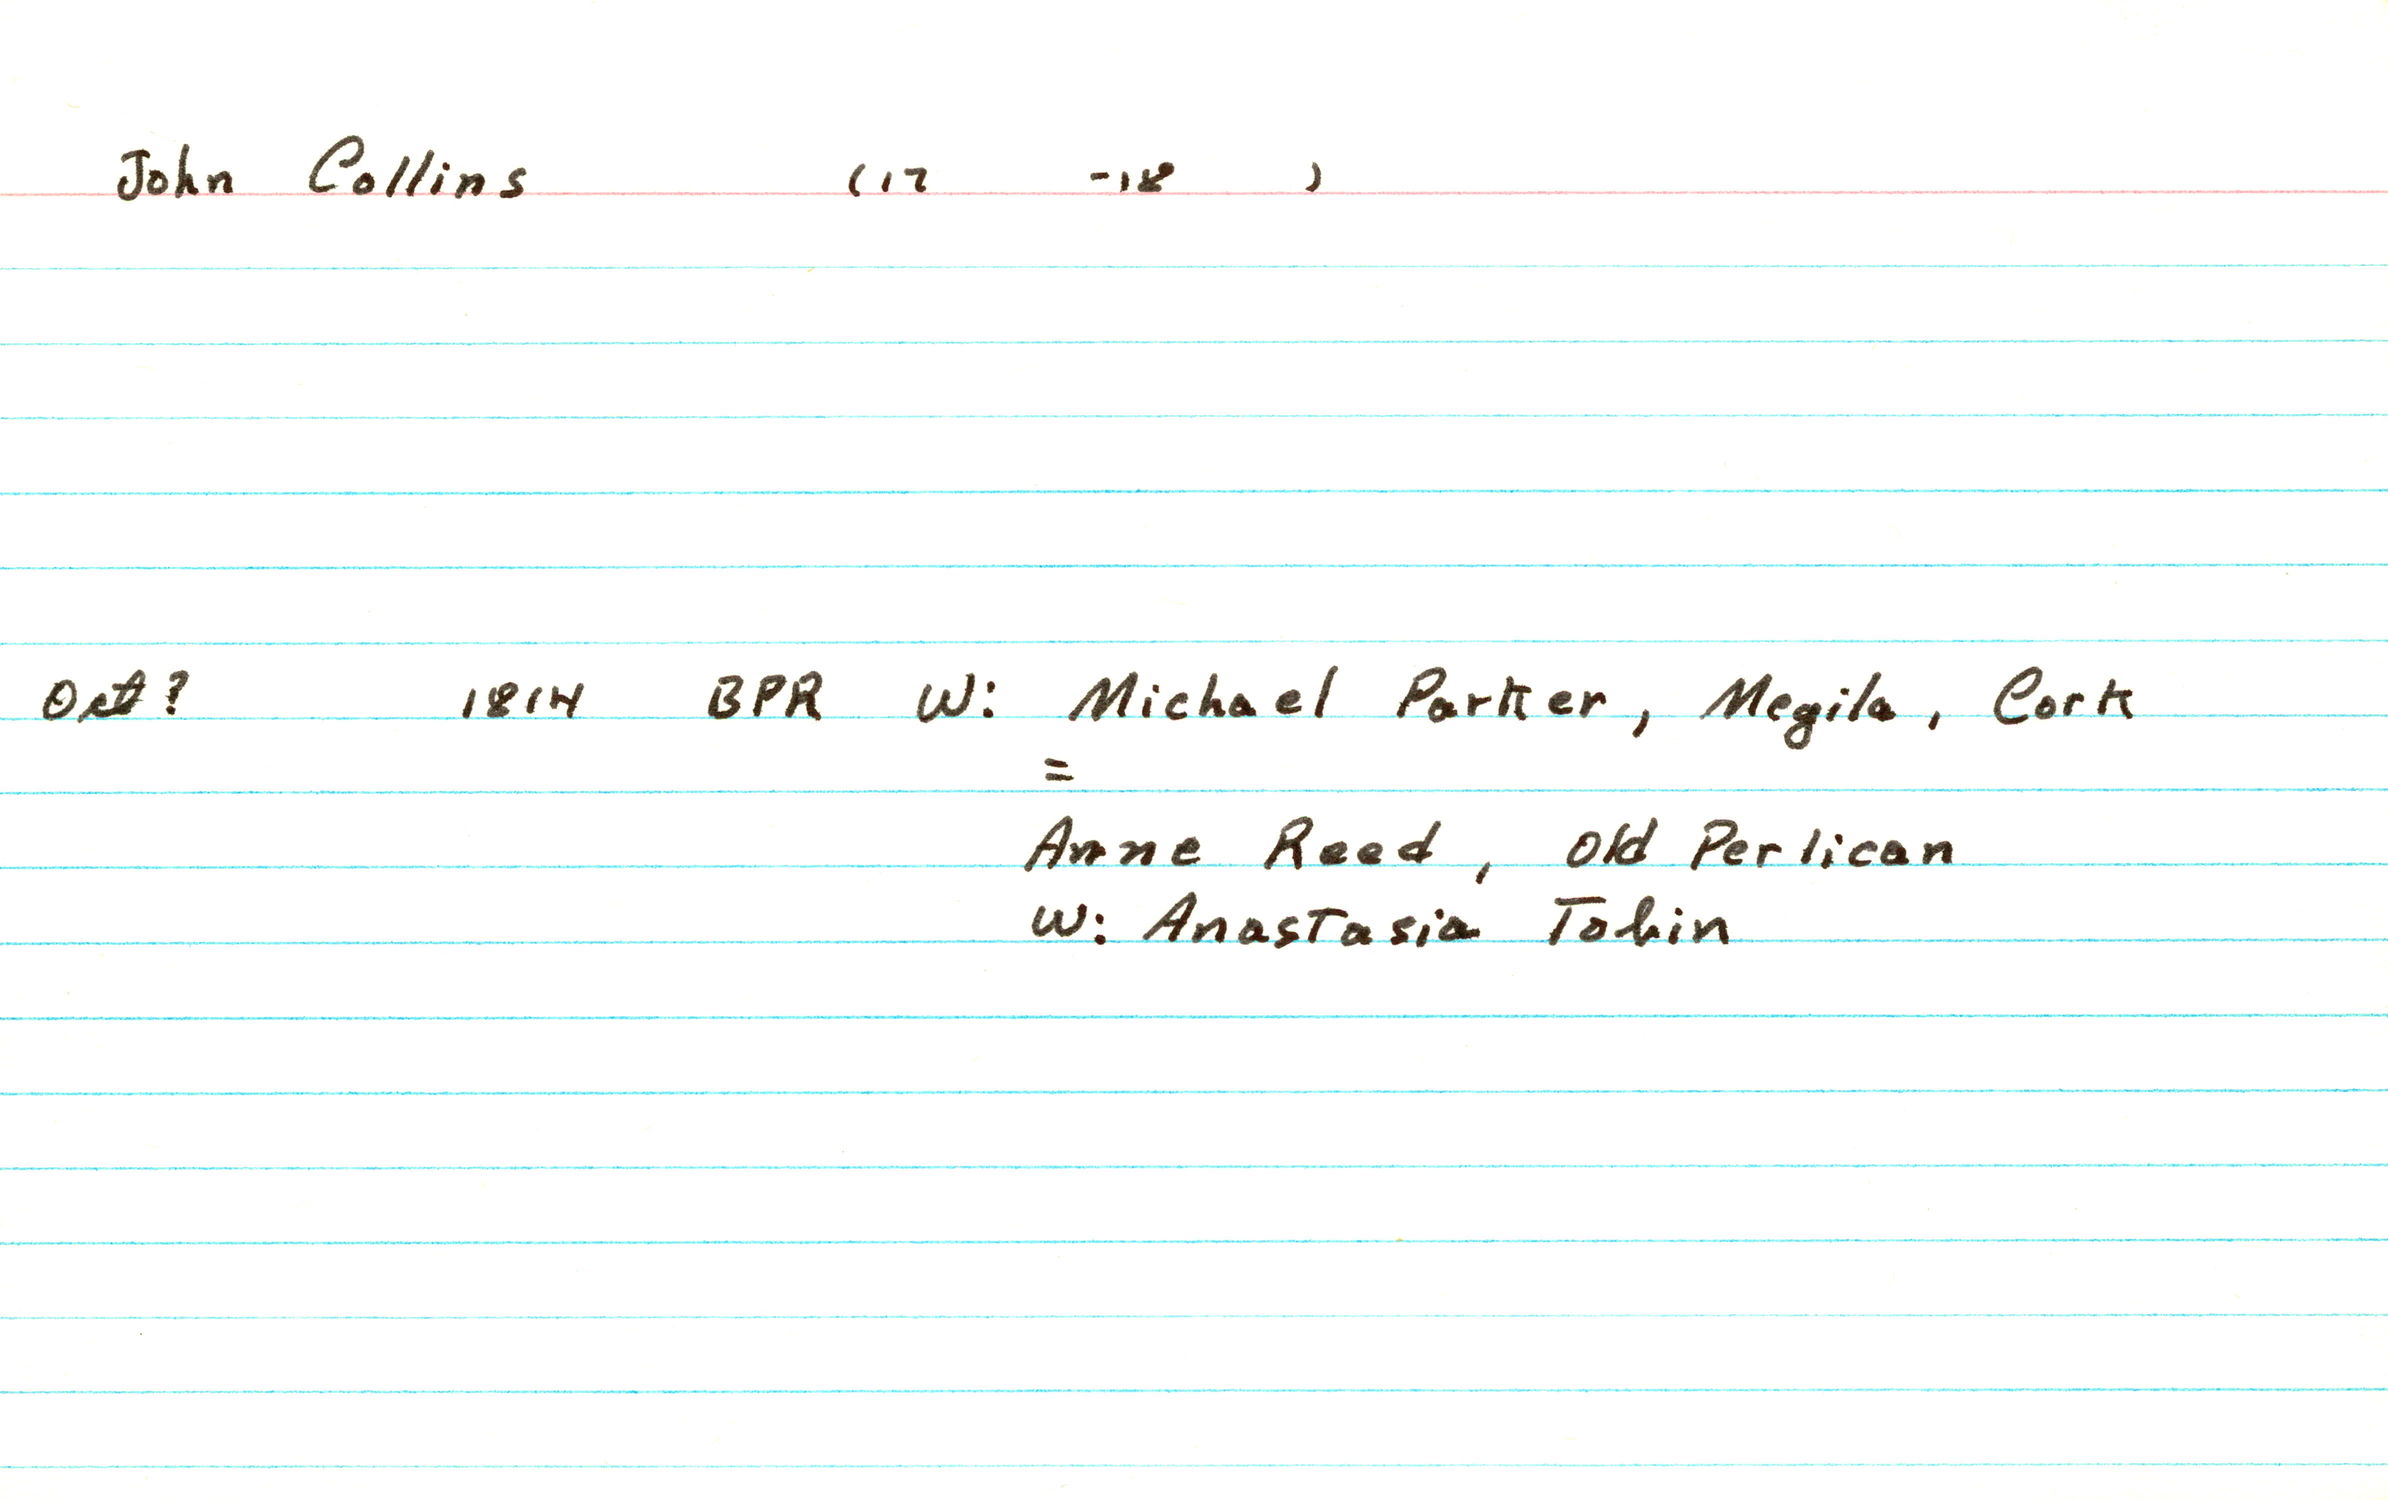 John Collins (17 -18 )
Oct? 1814 BPR W: Michael Parker, Megila, Cork
=
Anne Reed, Old Perlican
W: Anastasia Tobin